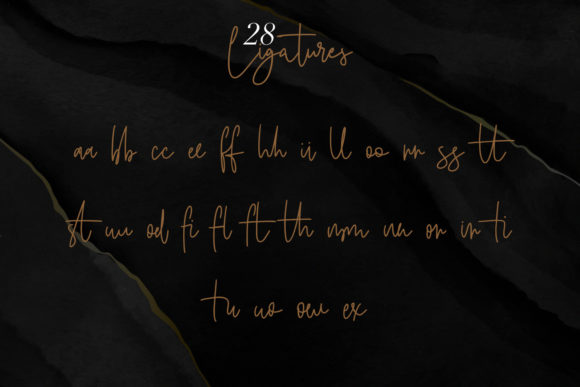 28
Ligatures
aa bb cc ee ff hh ii ll oo rr ss tt
st uu od fi fl ft th or ir ti
tu uo ow ex